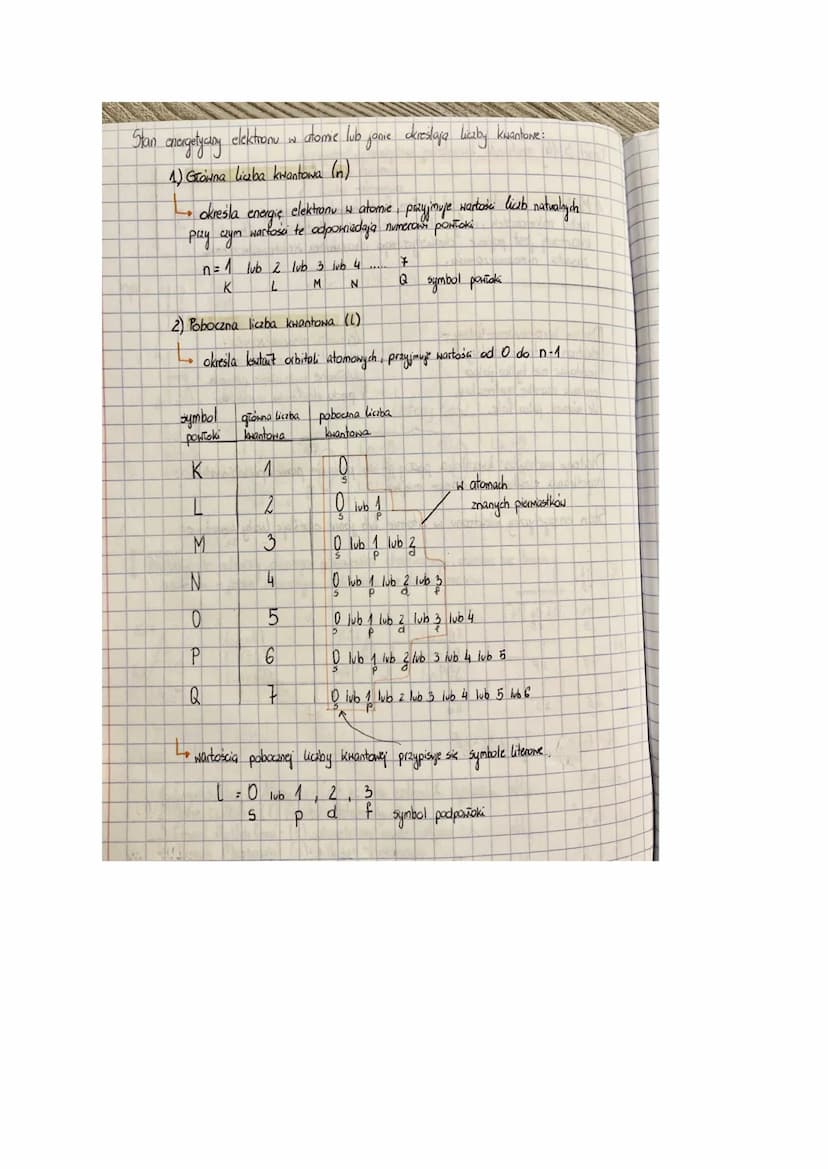 Stan energetyczny elektronu w atomie lub jonie określają liczby kwantowe:
1) Główna liczba kwantowa (n)
określa energię elektronu w atomie, przyjmuje wartości liczb naturalnych
przy czym wartości te odpowiadają numerowi powłoki
n = 1 lub 2 lub 3 lub 4 ..... 7
K L M N Q symbol powłoki
2) Poboczna liczba kwantowa (l)
określa kształt orbitali atomowych, przyjmuje wartości od 0 do n-1
symbol główna liczba poboczna liczba
powłoki kwantowa kwantowa
K 1 0
s
w atomach
L 2 0 lub 1 znanych pierwiastków
s p
M 3 0 lub 1 lub 2
s p d
N 4 0 lub 1 lub 2 lub 3
s p d f
O 5 0 lub 1 lub 2 lub 3 lub 4
s p d f
P 6 0 lub 1 lub 2 lub 3 lub 4 lub 5
s p d
Q 7 0 lub 1 lub 2 lub 3 lub 4 lub 5 lub 6
s p
wartością pobocznej liczby kwantowej przypisuje się symbole literowe.
l = 0 lub 1, 2, 3
s p d f symbol podpowłoki